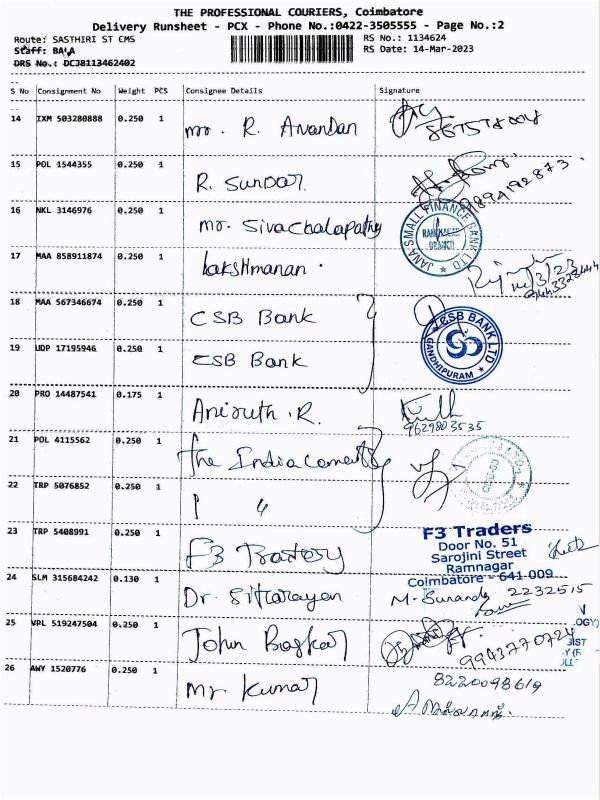 THE PROFESSIONAL COURIERS, Coimbatore
Delivery Runsheet - PCX - Phone No.:0422-3505555 - Page No.:2
Route: SASTHIRI ST CMS RS No.: 1134624
Staff: BALA RS Date: 14-Mar-2023
DRS No.: DCJ8113462402
S No Consignment No Weight PCS Consignee Details Signature
14 IXM 503280888 0.250 1 mr. R. Anandan
15 POL 1544355 0.250 1 R. Sundar 9894192873
16 NKL 3146976 0.250 1 mr. Sivachalapathy JANA SMALL FINANCE BANK LTD RAMNAGAR BRANCH
17 MAA 858911874 0.250 1 Lakshmanan 14/3/23
18 MAA 567346674 0.250 1 CSB Bank
19 UDP 17195946 0.250 1 CSB Bank CSB BANK LTD GANDHIPURAM
20 PRO 14487541 0.175 1 Anisuth .R. 9629803535
21 POL 4115562 0.250 1 The India cements
22 TRP 5076852 0.250 1
23 TRP 5408991 0.250 1 F3
F3 Traders
Door No. 51
Sarojini Street
Ramnagar
Coimbatore - 641 009
24 SLM 315684242 0.130 1 Dr. M. 2232515
25 VPL 519247504 0.250 1 John Baskar 9943770724
26 AWY 1520776 0.250 1 Mr Kumar 8220098619